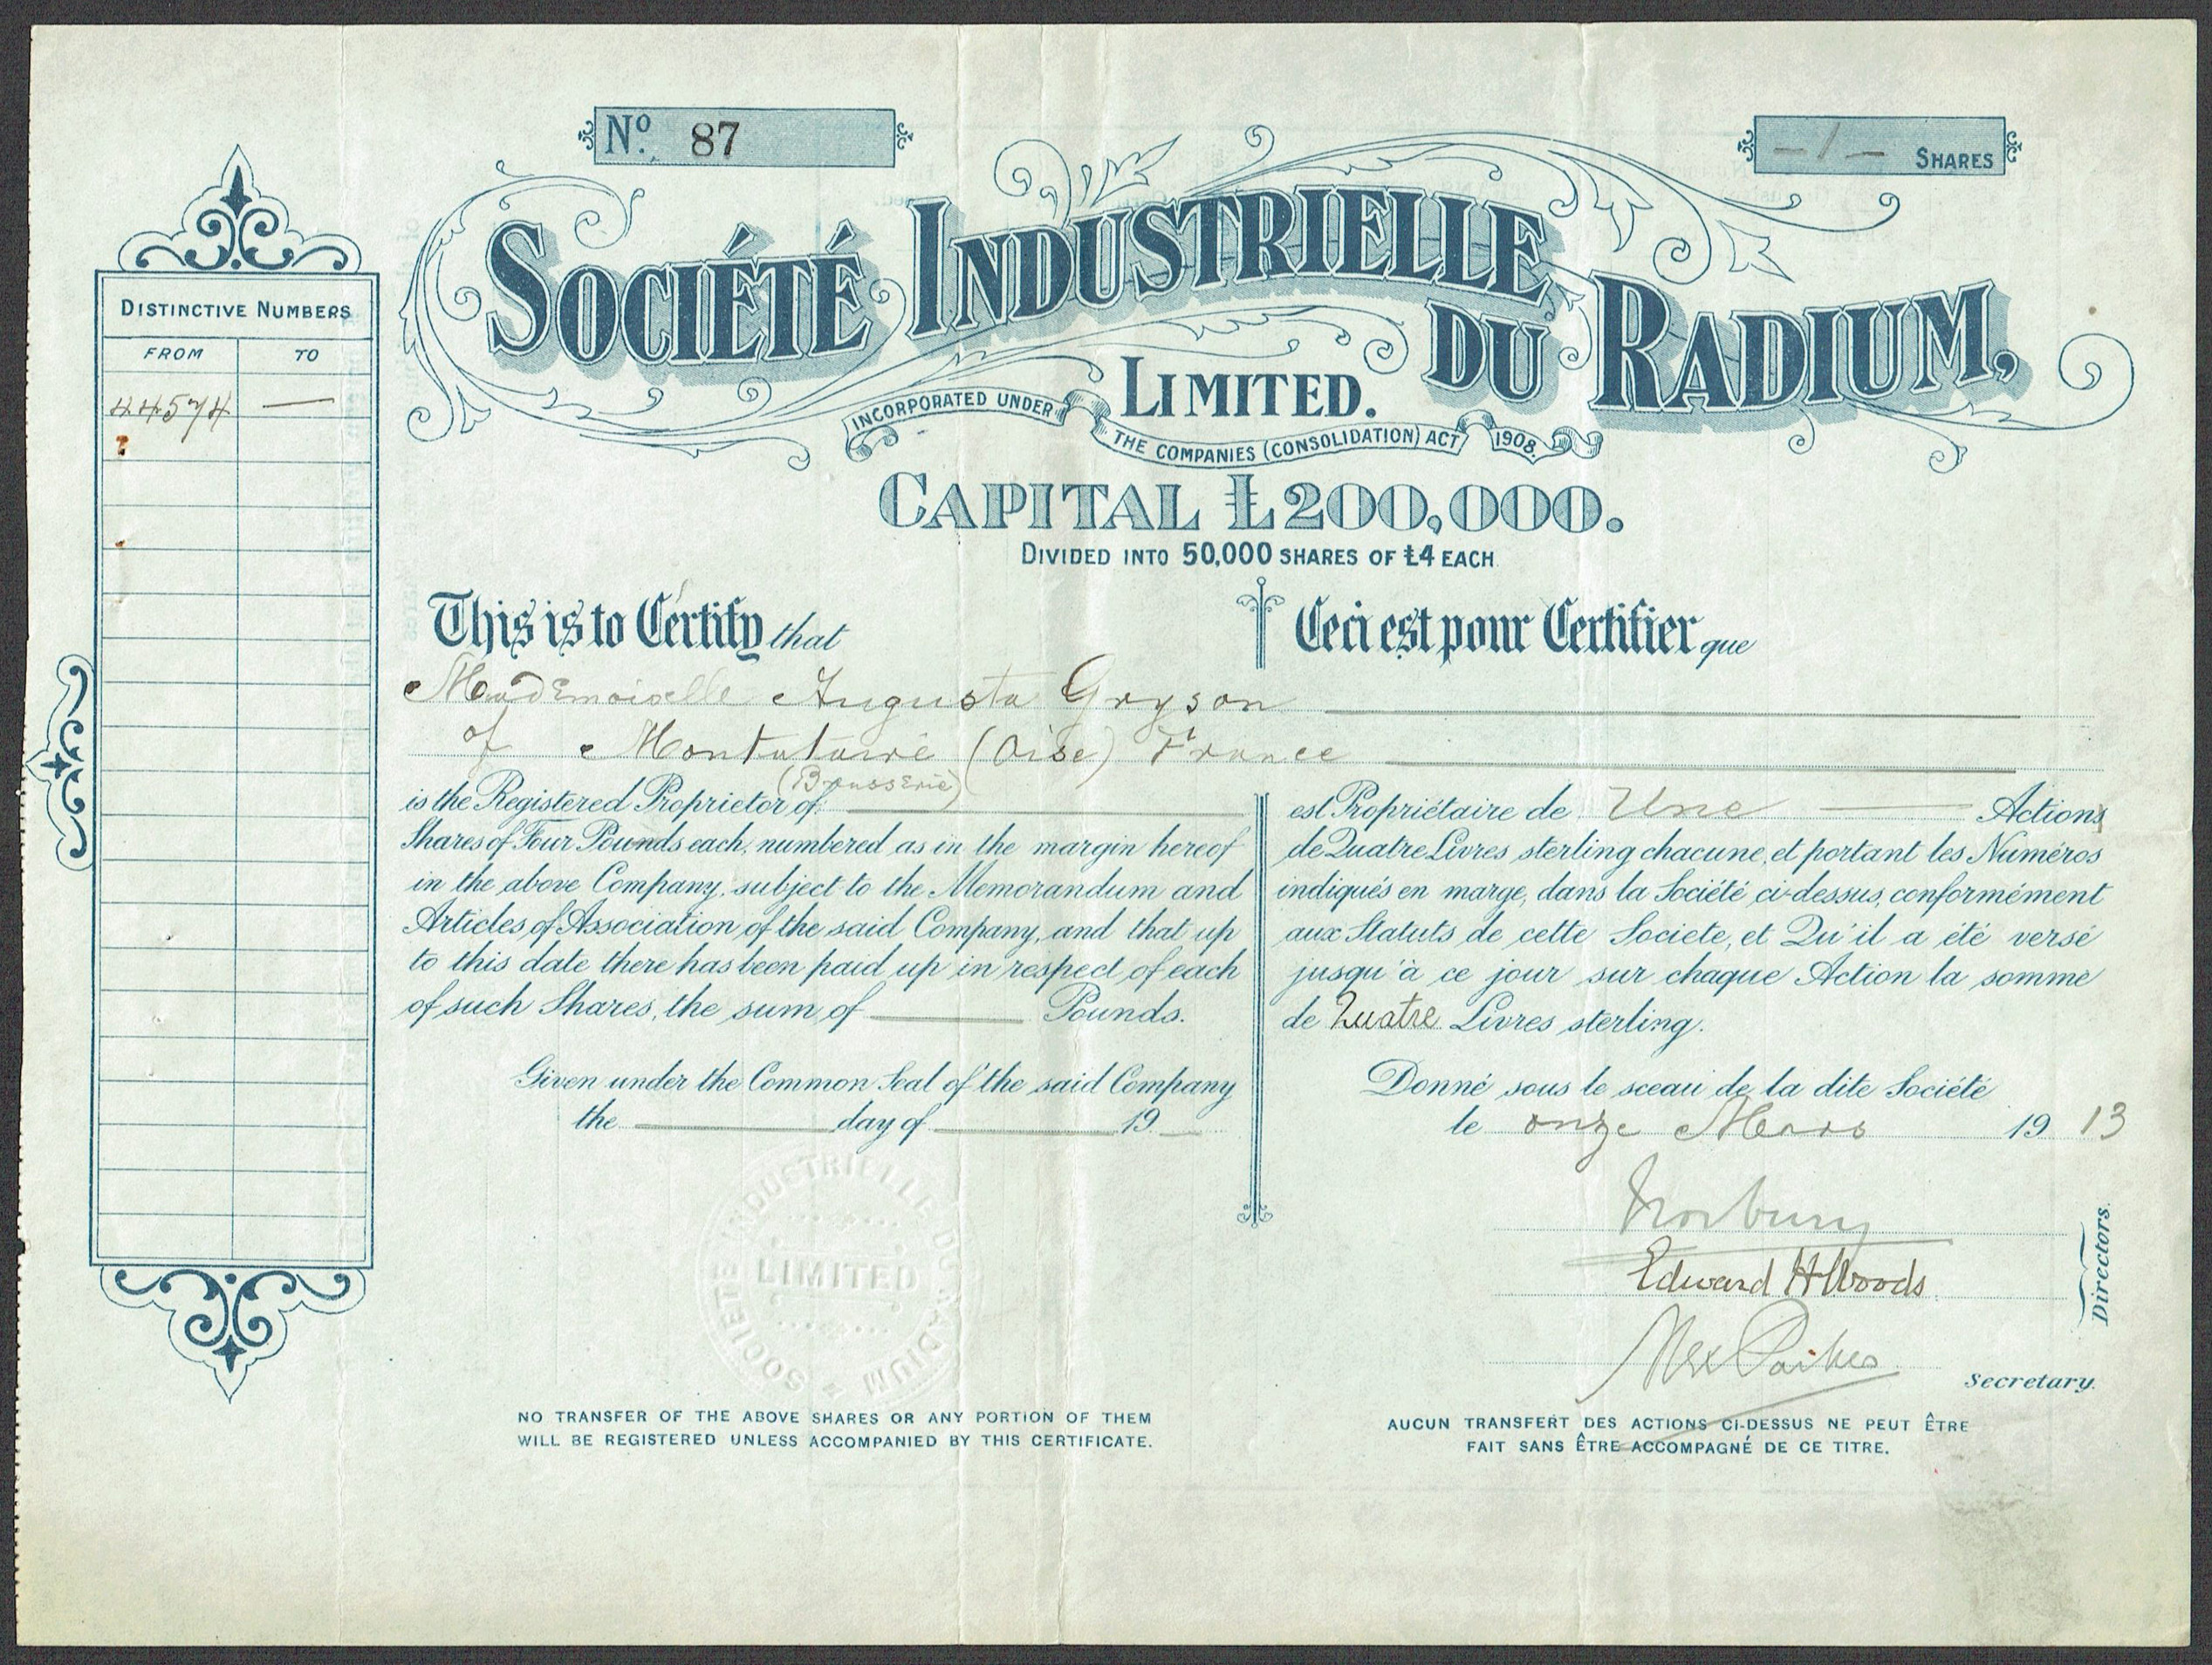 No. 87
— 1 — SHARES
SOCIÉTÉ INDUSTRIELLE DU RADIUM,
LIMITED.
INCORPORATED UNDER THE COMPANIES (CONSOLIDATION) ACT 1908.
CAPITAL £200,000.
DIVIDED INTO 50,000 SHARES OF £4 EACH
DISTINCTIVE NUMBERS
FROM TO
44574 —
This is to Certify that
Ceci est pour Certifier que
Mademoiselle Augusta Gryson
of Montataire (Oise) France
(Brasserie)
is the Registered Proprietor of
Shares of Four Pounds each, numbered as in the margin hereof
in the above Company, subject to the Memorandum and
Articles of Association of the said Company, and that up
to this date there has been paid up in respect of each
of such Shares, the sum of Pounds.
Given under the Common Seal of the said Company
the day of 19
est Propriétaire de Une Actions
de Quatre Livres sterling chacune, et portant les Numéros
indiqués en marge, dans la Société ci-dessus, conformément
aux Statuts de cette Societe, et Qu'il a été versé
jusqu'à ce jour sur chaque Action la somme
de Quatre Livres sterling.
Donné sous le sceau de la dite Société
le onze Mars 1913
Norbury
Edward H Woods
Directors.
Secretary.
SOCIETE INDUSTRIELLE DU RADIUM
LIMITED
NO TRANSFER OF THE ABOVE SHARES OR ANY PORTION OF THEM
WILL BE REGISTERED UNLESS ACCOMPANIED BY THIS CERTIFICATE.
AUCUN TRANSFERT DES ACTIONS CI-DESSUS NE PEUT ÊTRE
FAIT SANS ÊTRE ACCOMPAGNÉ DE CE TITRE.